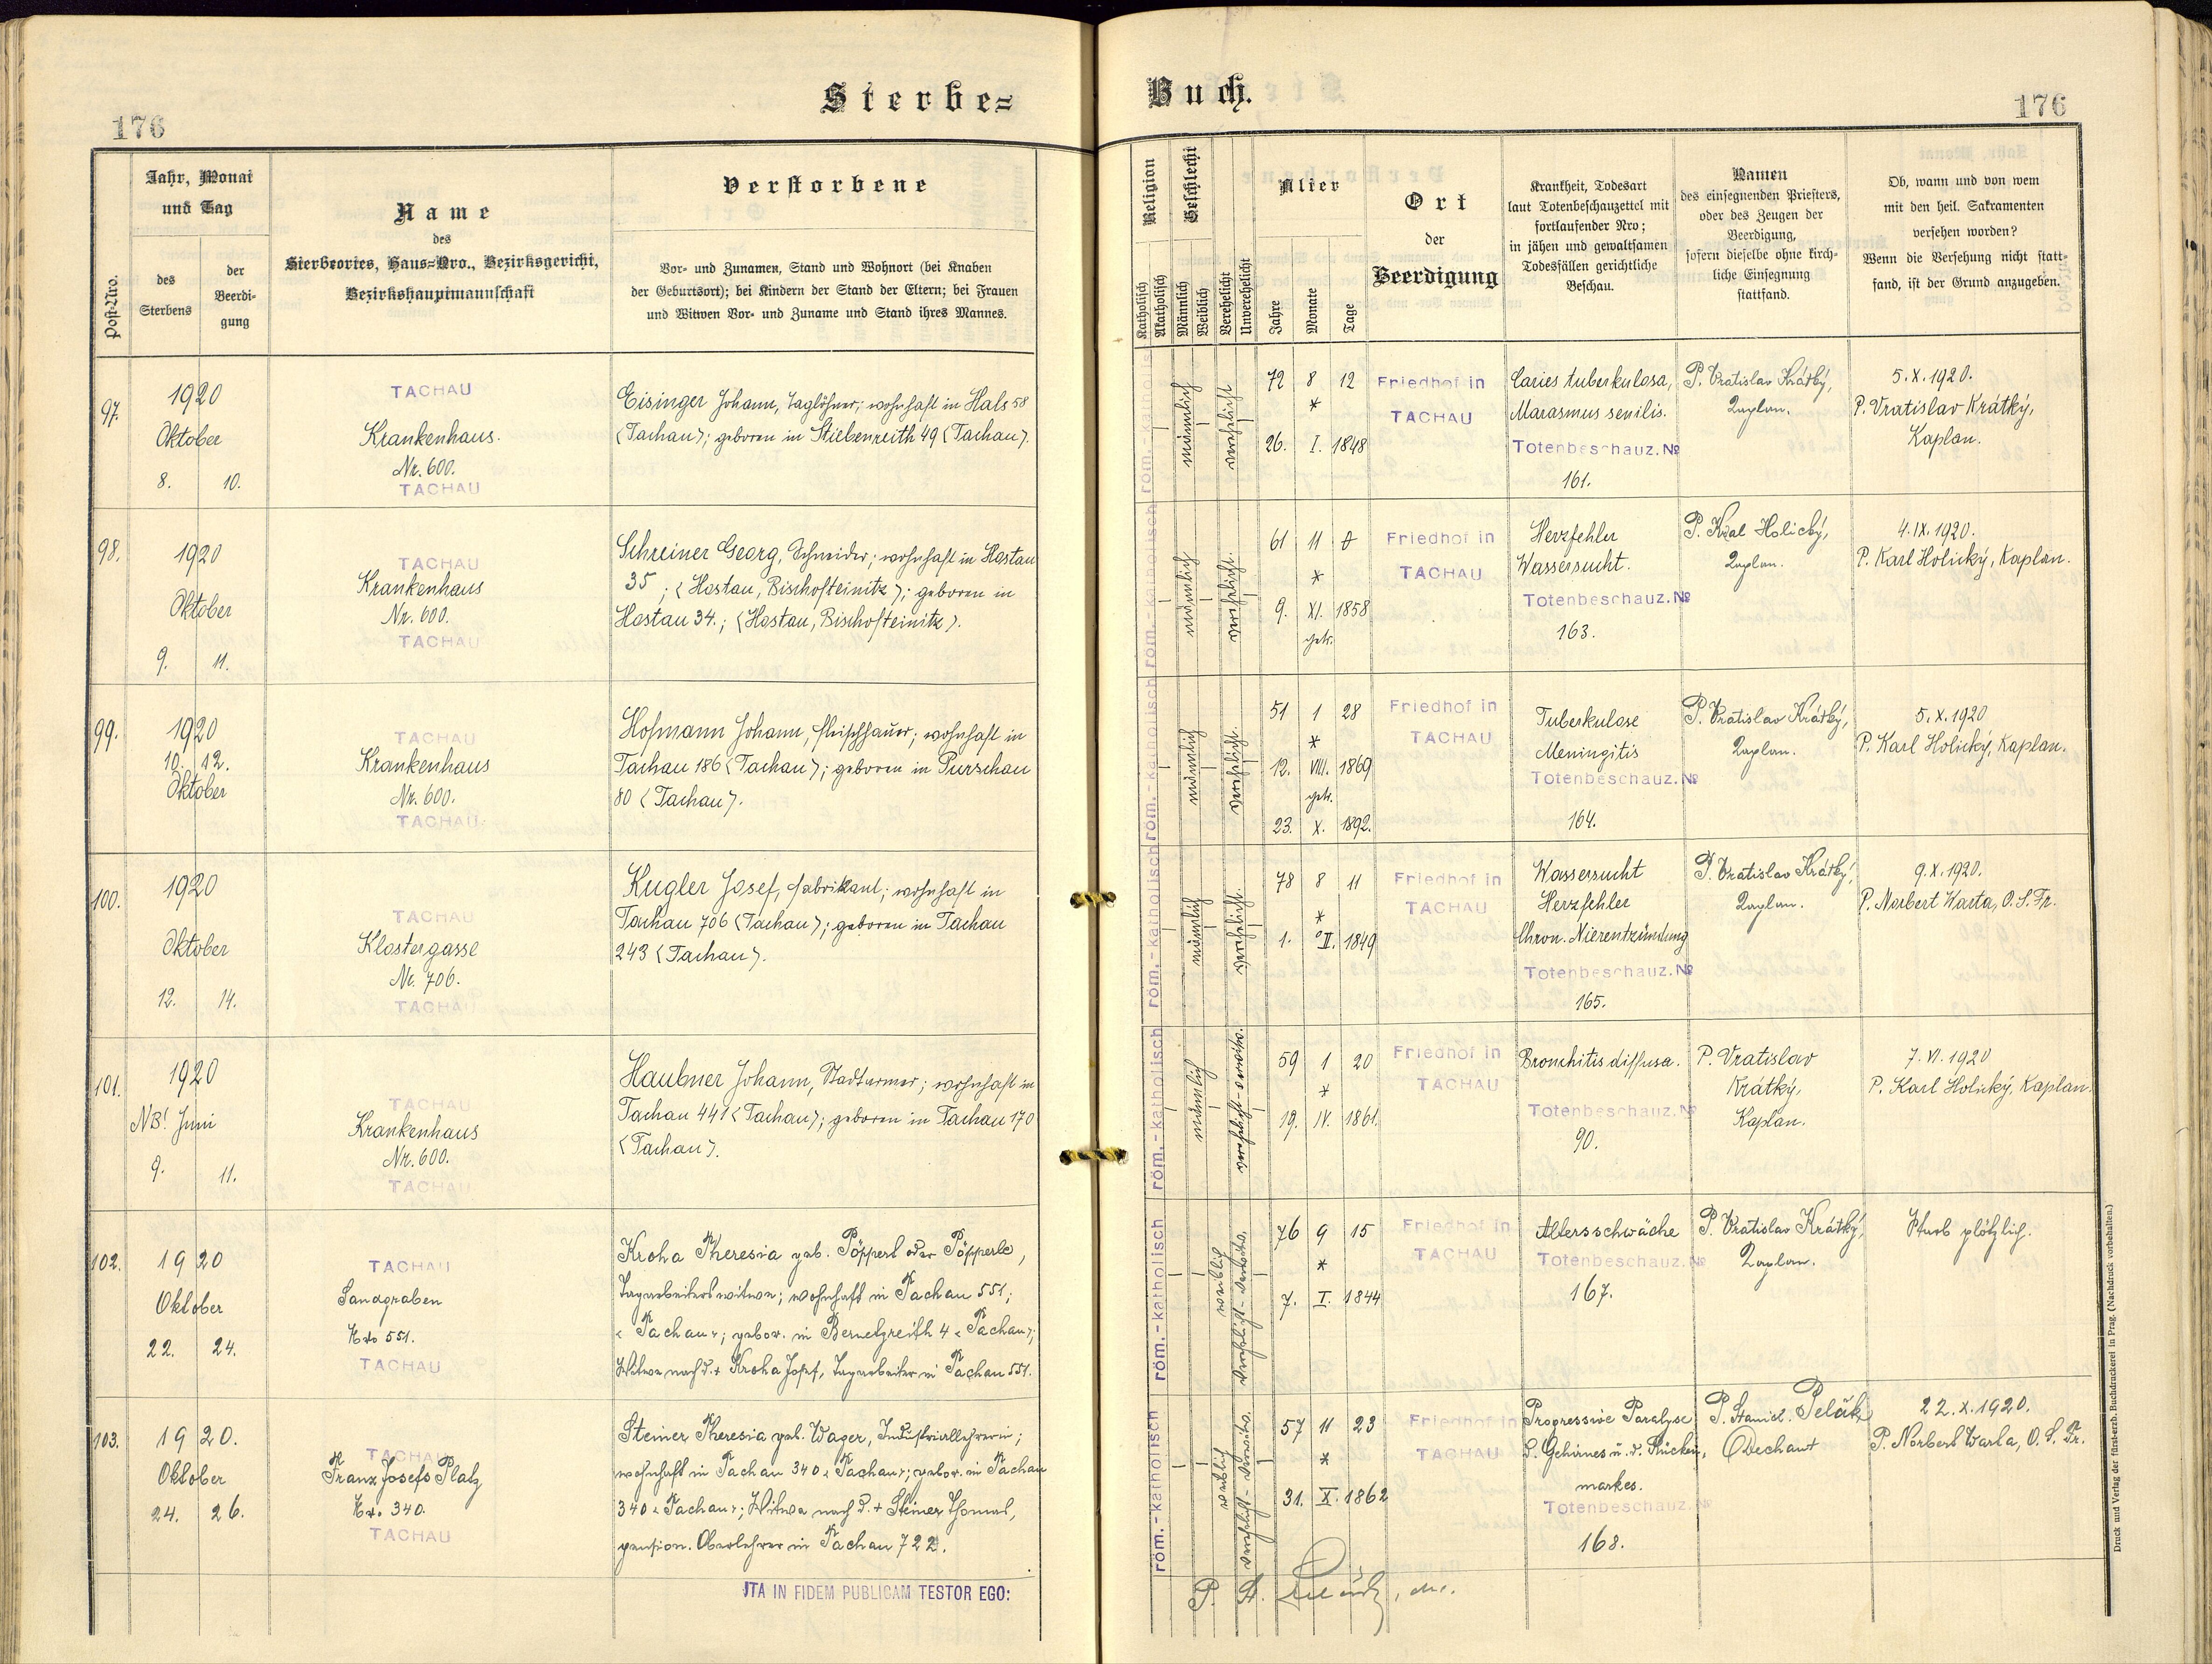 Sterbe-
Buch.
176
176
Post-Nro.
Jahr, Monat
und Tag
des
Sterbens
der
Beerdi-
gung
Name
des
Sterbeortes, Haus-Nro., Bezirksgericht,
Bezirkshauptmannschaft
Verstorbene
Vor- und Zunamen, Stand und Wohnort (bei Knaben
der Geburtsort); bei Kindern der Stand der Eltern; bei Frauen
und Witwen Vor- und Zuname und Stand ihres Mannes.
Religion
Katholisch
Akatholisch
Geschlecht
Männlich
Weiblich
Verehelicht
Unverehelicht
Alter
Jahre
Monate
Tage
Ort
der
Beerdigung
Krankheit, Todesart
laut Totenbeschauzettel mit
fortlaufender Nro;
in jähen und gewaltsamen
Todesfällen gerichtliche
Beschau.
Namen
des einsegnenden Priesters,
oder des Zeugen der
Beerdigung,
sofern dieselbe ohne kirch-
liche Einsegnung
stattfand.
Ob, wann und von wem
mit den heil. Sakramenten
versehen worden?
Wenn die Versehung nicht statt-
fand, ist der Grund anzugeben.
97.
1920
Oktober
8. 10.
TACHAU
Krankenhaus.
Nr. 600.
TACHAU
Eisinger Johann, Taglöhner; wohnhaft in Hals 58
(Tachau); geboren in Stiebenreith 49 (Tachau).
röm.-katholisch
männlich
verehelicht
72 8 12
*
26. I. 1848
Friedhof in
TACHAU
Caries tuberkulosa,
Marasmus senilis.
Totenbeschauz. No
161.
P. Vratislav Krátký,
Kaplan.
5.X.1920.
P. Vratislav Krátký,
Kaplan.
98.
1920
Oktober
9. 11.
TACHAU
Krankenhaus
Nr. 600.
TACHAU
Schreiner Georg, Schneider; wohnhaft in Hostau
35; (Hostau, Bischofteinitz); geboren in
Hostau 34.; (Hostau, Bischofteinitz).
röm.-katholisch
männlich
verehelicht.
61 11 0
*
9. XI. 1858
getr.
Friedhof in
TACHAU
Herzfehler
Wassersucht.
Totenbeschauz. No
163.
P. Karl Holický,
Kaplan.
4.IX.1920.
P. Karl Holický, Kaplan.
99.
1920
10. 12.
Oktober
TACHAU
Krankenhaus
Nr. 600.
TACHAU
Hofmann Johann, Fleischhauer; wohnhaft in
Tachau 186 (Tachau); geboren in Purschau
80 (Tachau).
röm.-katholisch
männlich
verehelicht.
51 1 28
*
12. VIII. 1869
getr.
23. X. 1892.
Friedhof in
TACHAU
Tuberkulose
Meningitis
Totenbeschauz. No
164.
P. Vratislav Krátký,
Kaplan.
5.X.1920
P. Karl Holický, Kaplan.
100.
1920
Oktober
12. 14.
TACHAU
Klostergasse
Nr. 706.
TACHAU
Kugler Josef, Fabrikant; wohnhaft in
Tachau 706 (Tachau); geboren in Tachau
243 (Tachau).
röm.-katholisch
männlich
verehelicht.
78 8 11
*
1. II. 1849
Friedhof in
TACHAU
Wassersucht
Herzfehler
Chron. Nierentzündung
Totenbeschauz. No
165.
P. Vratislav Krátký,
Kaplan.
9.X.1920.
P. Norbert Warta, O.S.Fr.
101.
1920
NB! Juni
9. 11.
TACHAU
Krankenhaus
Nr. 600.
TACHAU
Haubner Johann, Stadtarmer; wohnhaft in
Tachau 441 (Tachau); geboren in Tachau 170
(Tachau).
röm.-katholisch
männlich
verehelicht-verwitw.
59 1 20
*
19. IV. 1861.
Friedhof in
TACHAU
Bronchitis diffusa.
Totenbeschauz. No
90.
P. Vratislav
Krátký,
Kaplan.
7.VI.1920
P. Karl Holický, Kaplan.
102.
1920
Oktober
22. 24.
TACHAU
Sandgraben
Nro 551.
TACHAU
Kroha Theresia geb. Pöpperl oder Pöpperle,
Tagarbeiterswitwe; wohnhaft in Tachau 551;
(Tachau); gebor. in Bernetzreith 4 (Tachau);
Witwe nach d. + Kroha Josef, Tagarbeiter in Tachau 551.
röm.-katholisch
weiblich
verehelicht-verwitw.
76 9 15
*
7. I. 1844
Friedhof in
TACHAU
Altersschwäche
Totenbeschauz. No
167.
P. Vratislav Krátký,
Kaplan.
Starb plötzlich.
103.
1920.
Oktober
24. 26.
TACHAU
Franz Josefs Platz
Nr. 340.
TACHAU
Steiner Theresia geb. Wager, Industriallehrerin;
wohnhaft in Tachau 340 (Tachau); gebor. in Tachau
340 (Tachau); Witwe nach d. + Steiner Thomas,
pension. Oberlehrer in Tachau 722.
röm.-katholisch
weiblich
verehelicht-verwitw.
57 11 23
*
31. X. 1862
Friedhof in
TACHAU
Progressive Paralyse
d. Gehirnes u. d. Rücken-
markes.
Totenbeschauz. No
168.
P. Stanisl. Pelák,
Dechant
22.X.1920.
P. Norbert Warta, O.S.Fr.
ITA IN FIDEM PUBLICAM TESTOR EGO:
Druck und Verlag der fürst-erzb. Buchdruckerei in Prag. (Nachdruck vorbehalten.)